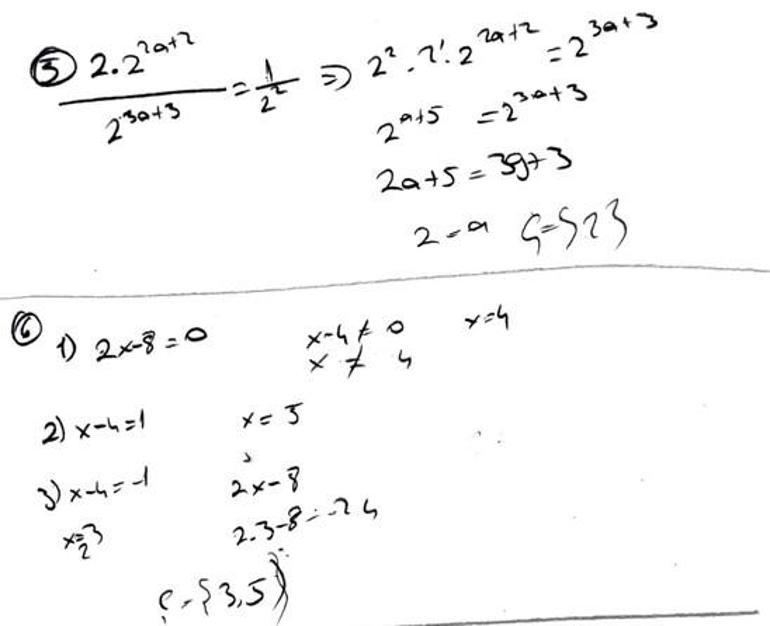 ⑤ 2·2^(2a+2) / 2^(3a+3) = 1/2² ⇒ 2²·2¹·2^(2a+2) = 2^(3a+3)
2^(a+5) = 2^(3a+3)
2a+5 = 3a+3
2 = a Ç={2}
⑥ 1) 2x-8=0 x-4≠0 x=4
x ≠ 4
2) x-4=1 x=5
3) x-4=-1 2x-8
x=3 2·3-8=-2
Ç={3,5}